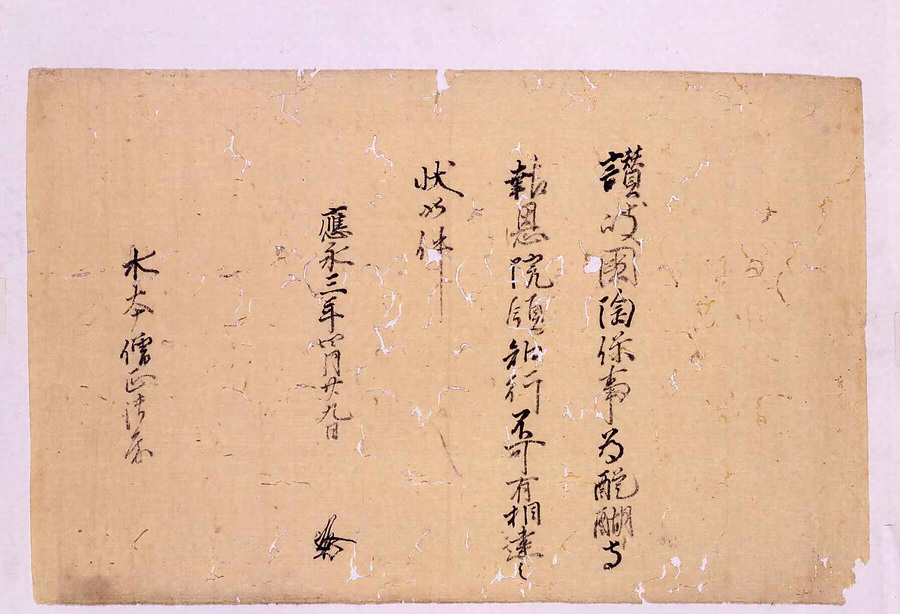 讃岐國陶保事為醍醐寺
報恩院領知行不可有相違之
状如件
應永三年四月廿九日
水本僧正御房